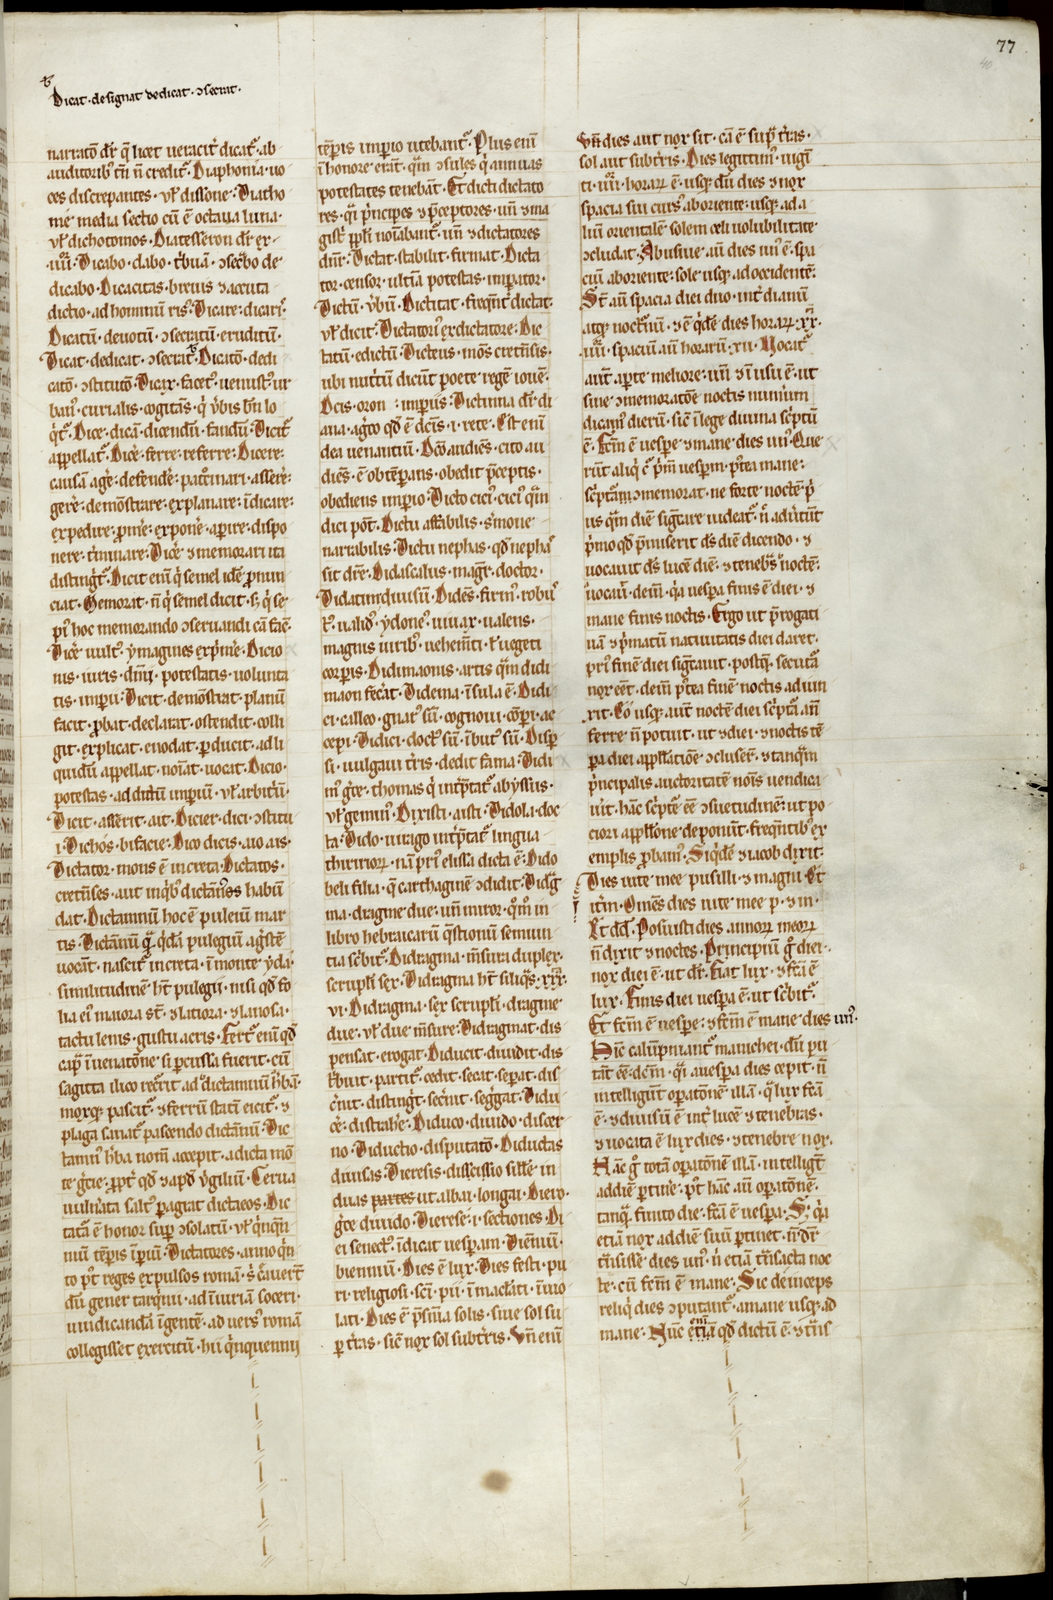 77
40
Dicat · designat dedicat · ↄsecrat ·
narratō dr̄ q̄ licet ueracit̄ dicat᷑ · ab
auditorib᷒ tn̄ n̄ credit᷑ · Diaphonia · uo
ces discrepantes · ul̄ dissone · Diatho
me media sectio cū ē octaua luna ·
ul̄ dichotomos · Diatesseron dr̄ ex ·
iiii · Dicabo · dabo · t̄buā · ↄsec̄bo de
dicabo · Dicacitas · breuis ⁊ acuta
dictio · ad hominū ris᷒ · Dicare · dicari᷒ ·
Dicatū · deuotū · ↄsecratū · eruditū ·
Dicat · dedicat · ↄsecrat · Dicatō · dedi
catō · ↄstitutō · Dicax · facet᷒ · uenust᷒ ur
ban᷒ · curialis · cogitās · q̄ ūbis bn̄ lo
q̄t᷑ · Dice · dicā · dicendū · fandū · Dicit᷑
appellat᷑ · Dicē · ferre · referre · Dicere ·
causā agē · defendē · patrocinari · asserē ·
gerē · demōstrare · explanare · īdicare ·
expedire · pmē · exponē · apire · dispo
nere · t̄minare · Dicē ⁊ memorari ita
distingt᷑ · Dicit eni᷒ q̄ semel idē pronun
ciat · Memorat · n̄ q̄ semel dicit · s; q̄ se
pi᷒ hoc memorando ↄseruandi cā facē ·
Dicē uult᷒ · ymagines exp̄mē · Dicio
nis · iuris · dn̄ij · potestatis · uolunta
tis · imp̄ij · Dicit · demōstrat · planū
facit · pbat · declarat · ostendit · colli
git · explicat · enodat · pducit · ad li
quidū · appellat · noīat · uocat · Dicio ·
potestas · ad dictū imp̄iū · ul̄ arbitriū ·
Dicit · asserit · ait · Dicier · dici · ↄstitu
i · Dichos · bifacie · Dico dicis · aio ais ·
Dictator · mons ē in creta · Dictatos ·
cretēses · aut inq̄b᷒ dictānos habūn
dat · Dictamnū hoc ē puleiū mar
tis · Dictānū q̄ q̄dā pulegiū agrestē
uocāt · nascit᷑ in creta · ī monte yda ·
similitudinē hn̄t pulegii · nisi qd̄ fo
lia ei᷒ maiora st̄ · ⁊ latiora · ⁊ lanosa ·
tactu lenis · gustu acris · Fert᷑ enī qd̄
cap̄ ī uenatōne si pcussa fuerit · cū
sagitta ilico recurrit ad dictamnū hbā ·
moxq; pascit᷑ · ⁊ ferrū statī eicit᷑ · ⁊
plaga sanat᷑ pascendo dictānū · Dic
tann᷒ hba nom̄ accepit · a dicta mō
te grecie · ppt̄ qd̄ ⁊ apd̄ virgiliū · Cerua
uulnerata salt᷒ pagrat dicteos · Dic
tatā ē honor sup ↄsolatū · ul̄ q̄nq̄n
niū tēpis īp̄iū · Dictatores · anno q̄n
to p᷒t reges expulsos romā · s̄ creauert̄
dū gener tarq̄ni · ad iniuriā soceri ·
uindicandā īgentē · aduers᷒ romā
collegisset exercitū · hii q̄nquennij
tēpis imp̄io utebant᷑ · Plus enī
ī honore erāt · q̄m ↄsules q̄ annuas
potestates tenebāt · Et dicti dictato
res · q̄si p̄ncipes ⁊ p̄ceptores · un̄ ⁊ ma
gist᷒ ppl̄i noīabant᷑ · un̄ ⁊ dictatores
dn̄r · Dictat · stabilit · firmat · Dicta
tor · censor · ultīa potestas · imp̄ator ·
Dictū · ūbū · Dictitat · freq̄nt᷒ dictat ·
ul̄ dicit · Dictatori᷒ ex dictatore · Dic
tatū · edictū · Dicteus · mōs cretēsis ·
ubi nutritū dicūt poete regē iouē ·
Dcis · oron · imp̄ius · Dictinna dr̄ di
ana · agreo qd̄ ē dcn̄is · i · rete · Est enī
dea uenantiū · Dcō audiēs · cito au
diēs · ē obtēpans · obedit p̄ceptis ·
obediens imp̄io · Dicto cici᷒ · cici᷒ q̄m
dici pōt · Dictu affabilis · s̄mone
narrabilis · Dictu nephas · qd̄ nephas
sit dr̄e · Didascalus · magr̄ · doctor ·
Didatim diuisū · Didēs · firm᷒ · robu
st᷒ · ualid᷒ · ydone᷒ · uiuax · ualens ·
magnus uirib᷒ · uehemēti · ⁊ uegeti
corpis · Didimaonis · artis q̄m didi
maon fecāt · Didema · īsula ē · Didi
ci · calleo · gnar᷒ sū · cognoui · cōpi · ac
cepi · Didici · doct᷒ sū · ībut᷒ sū · Disp
si · uulgaui t̄ris · dedit fama · Didi
m᷒ gr̄ce · thomas q̄ intp̄tat᷑ abyssus ·
ul̄ gemin᷒ · Dixisti · aisti · Didola · doc
ta · Dido · uirago intp̄tat᷑ lingua
thiriorꝝ · nā pri᷒ elissa dicta ē · Dido
beli filia · q̄ carthaginē ↄdidit · Didg̃
ma · dragme due · un̄ miror · q̄m̄ in
libro hebraicarū q̄stionū semiun
cia sc̄bit᷑ · Didragma · mēsura duplex ·
scrupl̄i sex · Didragma hn̄t siliq̄s · xxx ·
vi · Didragma · sex scrupl̄i · dragme
due · ul̄ due mēsure · Didragmat · dis
pensat · erogat · Diducit · diuidit · dis
t̄buit · partit᷑ · cedit · secat · sepat · dis
c̄nit · distingt̄ · secn̄it · seg̃gat · Didu
cē · distrahē · Diduco · diuido · discer
no · Diductio · disputatō · Diductas
diuisas · Dieresis · discissio sill̄e in
duas partes ut albai · longai · Diero ·
gr̄ce diuido · Dierese · i · sectiones · Di
ei senect᷒ · īdicat uesperam · Diēniū ·
bienniū · Dies ē lux · Dies festi · pu
ri · religiosi · scī · pii · ī maculati · īuio
lati · Dies ē p̄sētia solis · siue sol su
p t̄ras · sic̄ nox sol subt̄ris · Un̄ enī
un̄ dies aut nox sit · cā ē sup t̄ras ·
sol aut subt̄ris · Dies legitim᷒ · uigī
ti · iiii · horarꝝ ē · usq; dū dies ⁊ nox
spacia sui curs᷒ ab oriente · usq; ad a
liū orientalē solem celi uolubilitate
ↄcludat · Abusiue aū dies un᷒ ē · spa
ciū aboriente sole usq; ad occidentē ·
St̄ aū spacia diei duo · int̄dianū
atq; nocturnū · ⁊ ē q̄dē dies horarꝝ · xx ·
iiii · spaciū aū horarū · xii · Vocat᷑
aūt apte meliore · un̄ ⁊ ī usu ē · ut
siue ↄmemoratōe noctis num̄um
dicam᷒ dierū · sic̄ ī lege diuina sc̄ptū
ē · Fcm̄ ē uespe · ⁊ mane · dies un᷒ · Que
rūt aliq̄ c̄ p᷒m uesperm · p᷒tea mane ·
sc̄ptam ↄmemorat · ne forte noctē p̄
us q̄m diē sigr̄care uideat᷑ · n̄ aduertūt
p̄mo qd̄ p̄miserit ds̄ diē dicendo · ⁊
uocauit ds̄ lucē diē · ⁊ tenebs̄ noctē ·
uocaui᷒ · dein᷒ · q̄a uespa finis ē diei · ⁊
mane finis noctis · Ergo ut p̄rogati
uā ⁊ p̄matū natiuitatis diei daret ·
pri᷒ finē diei sigr̄cauit · postq̄ · secutā
nox eēt · dein᷒ p᷒tea finē noctis adiun
xit · Eo usq; aūt noctē diei sc̄pta an̄
ferre n̄ potuit · ut ⁊ diei · ⁊ noctis tē
pa diei appllatiōe ↄcluser̄ · ⁊ tanq̄m
p̄ncipalis auctoritatē nōis uendica
uīt · hāc sc̄pte eē ↄsuetudinē · ut po
ciori appllōne deponūt · freq̄ntib᷒ ex
emplis pbam᷒ · Siq̄dē ⁊ iacob dixit ·
Dies uite mee pusilli · ⁊ magni · Et
it̄m · Omēs dies uite mee p · ⁊ m ·
Et dd̄ · Posuisti dies · annorꝝ meorꝝ
n̄ dixit ⁊ noctes · Principiū g̊ diei ·
nox diei ē · ut dr̄ · Fiat lux · ⁊ fcā ē
lux · Finis diei uespa ē · ut sc̄bit᷑ ·
Et fcm̄ ē uespe · ⁊ fcm̄ ē mane dies un᷒ ·
Hic calūpniant᷑ manichei · dū pu
tāt eē dcm̄ · q̄si auespa dies cepit · n̄
intelligūt opatōnē illā · q̄ lux fcā
ē · ⁊ diuisū ē int̄ lucē ⁊ tenebras ·
⁊ uocata ē lux dies · ⁊ tenebre nox ·
Hāc g̊ totā opatōnē illā · intelligt̄
ad diē ptinē · p᷒t hāc aū opatōnē ·
tanq̄ finito die · fcā ē uespa · S; q̄a
etiā nox ad diē suū ptinet · n̄ dr̄
t̄nsisse dies un᷒ · n̄ etiā t̄nsacta noc
te · cū fcm̄ ē mane · Sic deinceps
reliq̄ dies ↄputant᷑ · a mane usq; ad
mane · Nūc etiā qd̄ dictū ē · ⁊ t̄n̄s